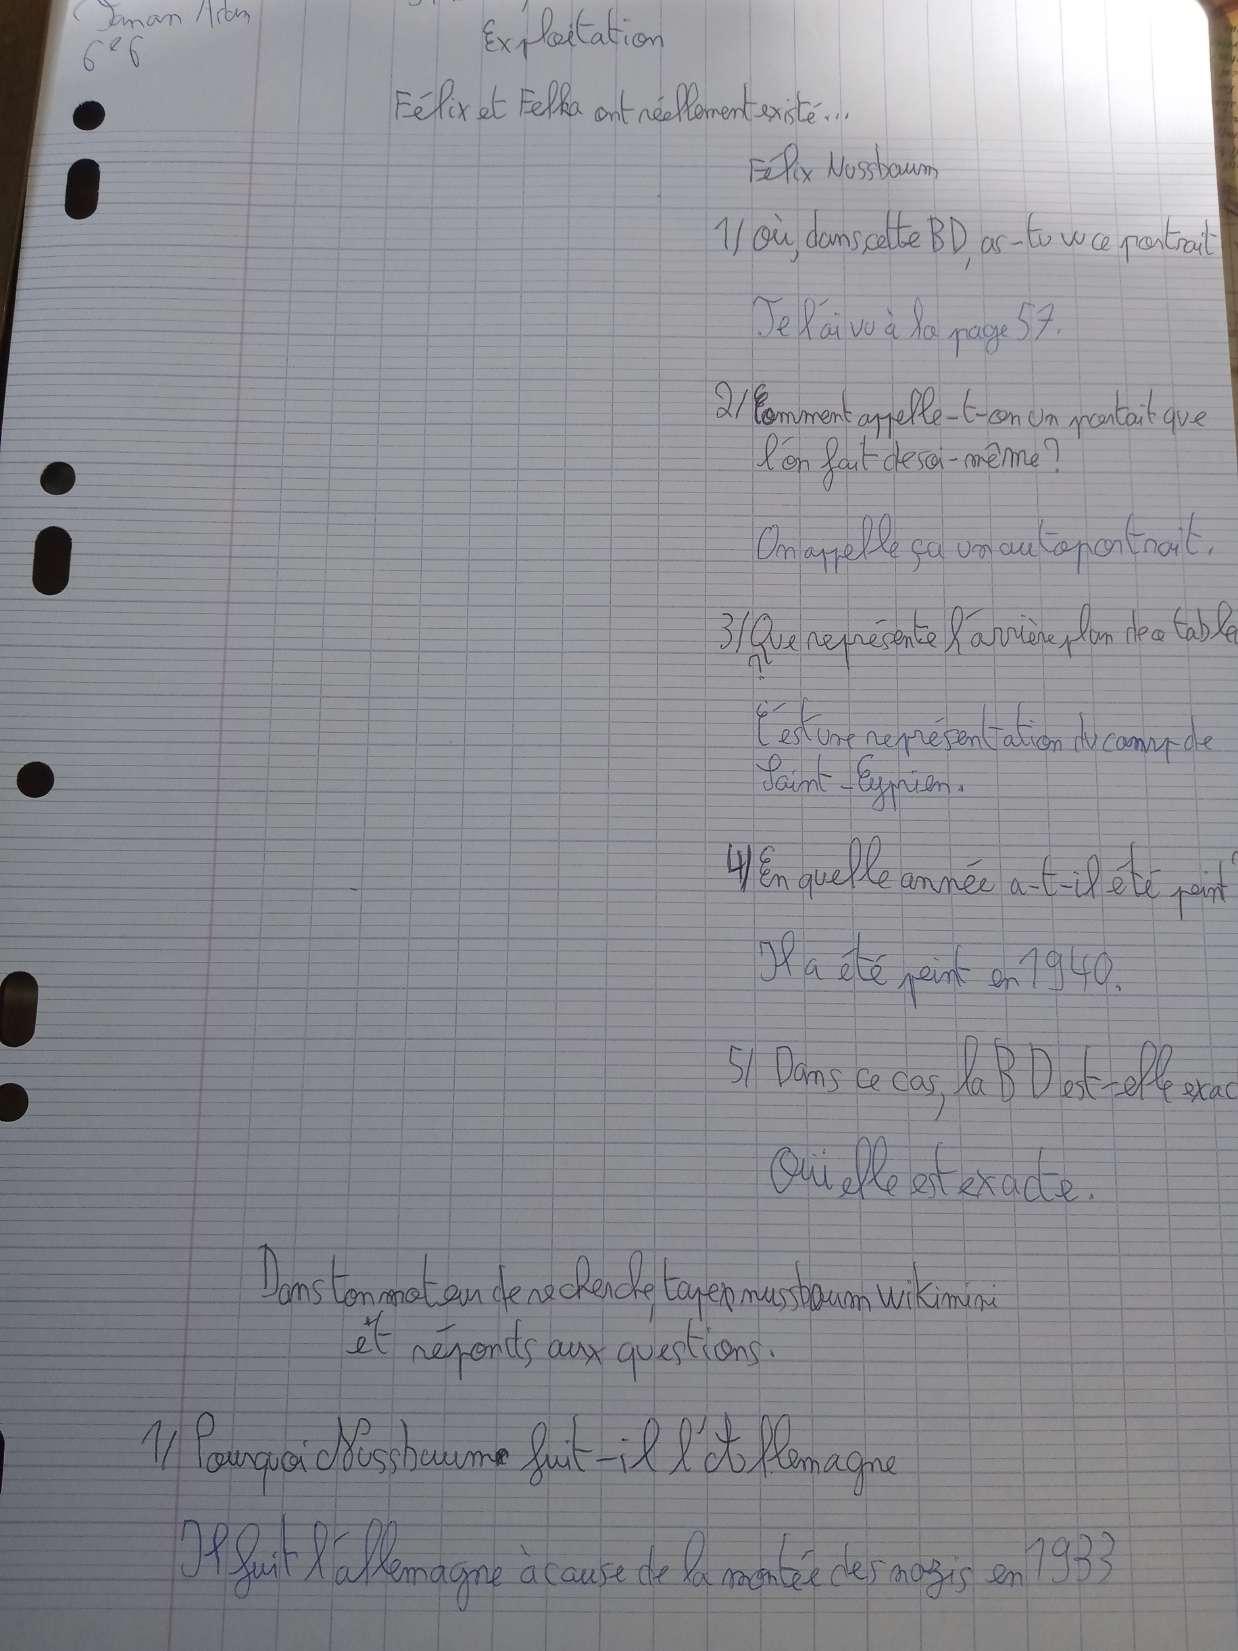 6e6
Exploitation
Félix et Felka ont réellement existé...
Félix Nussbaum
1/ Où, dans cette BD, as-tu vu ce portrait
Je l'ai vu à la page 57.
2/ Comment appelle-t-on un portait que
l'on fait de soi-même?
On appelle ça un autoportrait.
3/ Que représente l'arrière plan de ce table
?
C'est une représentation du camp de
Saint-Cyprien.
4/ En quelle année a-t-il été peint?
Il a été peint en 1940.
5/ Dans ce cas, la BD est-elle exac
Oui elle est exacte.
Dans ton moteur de recherche, taper nussbaum wikimini
et réponds aux questions.
1/ Pourquoi Nussbaum fuit-il l'Allemagne
Il fuit l'allemagne à cause de la montée des nazis en 1933